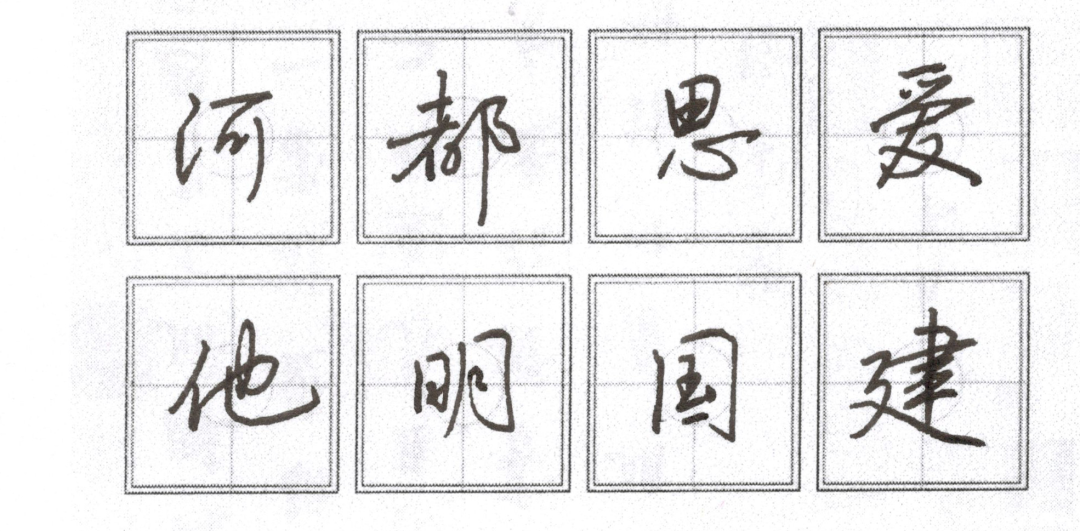 河都思爱
他明国建